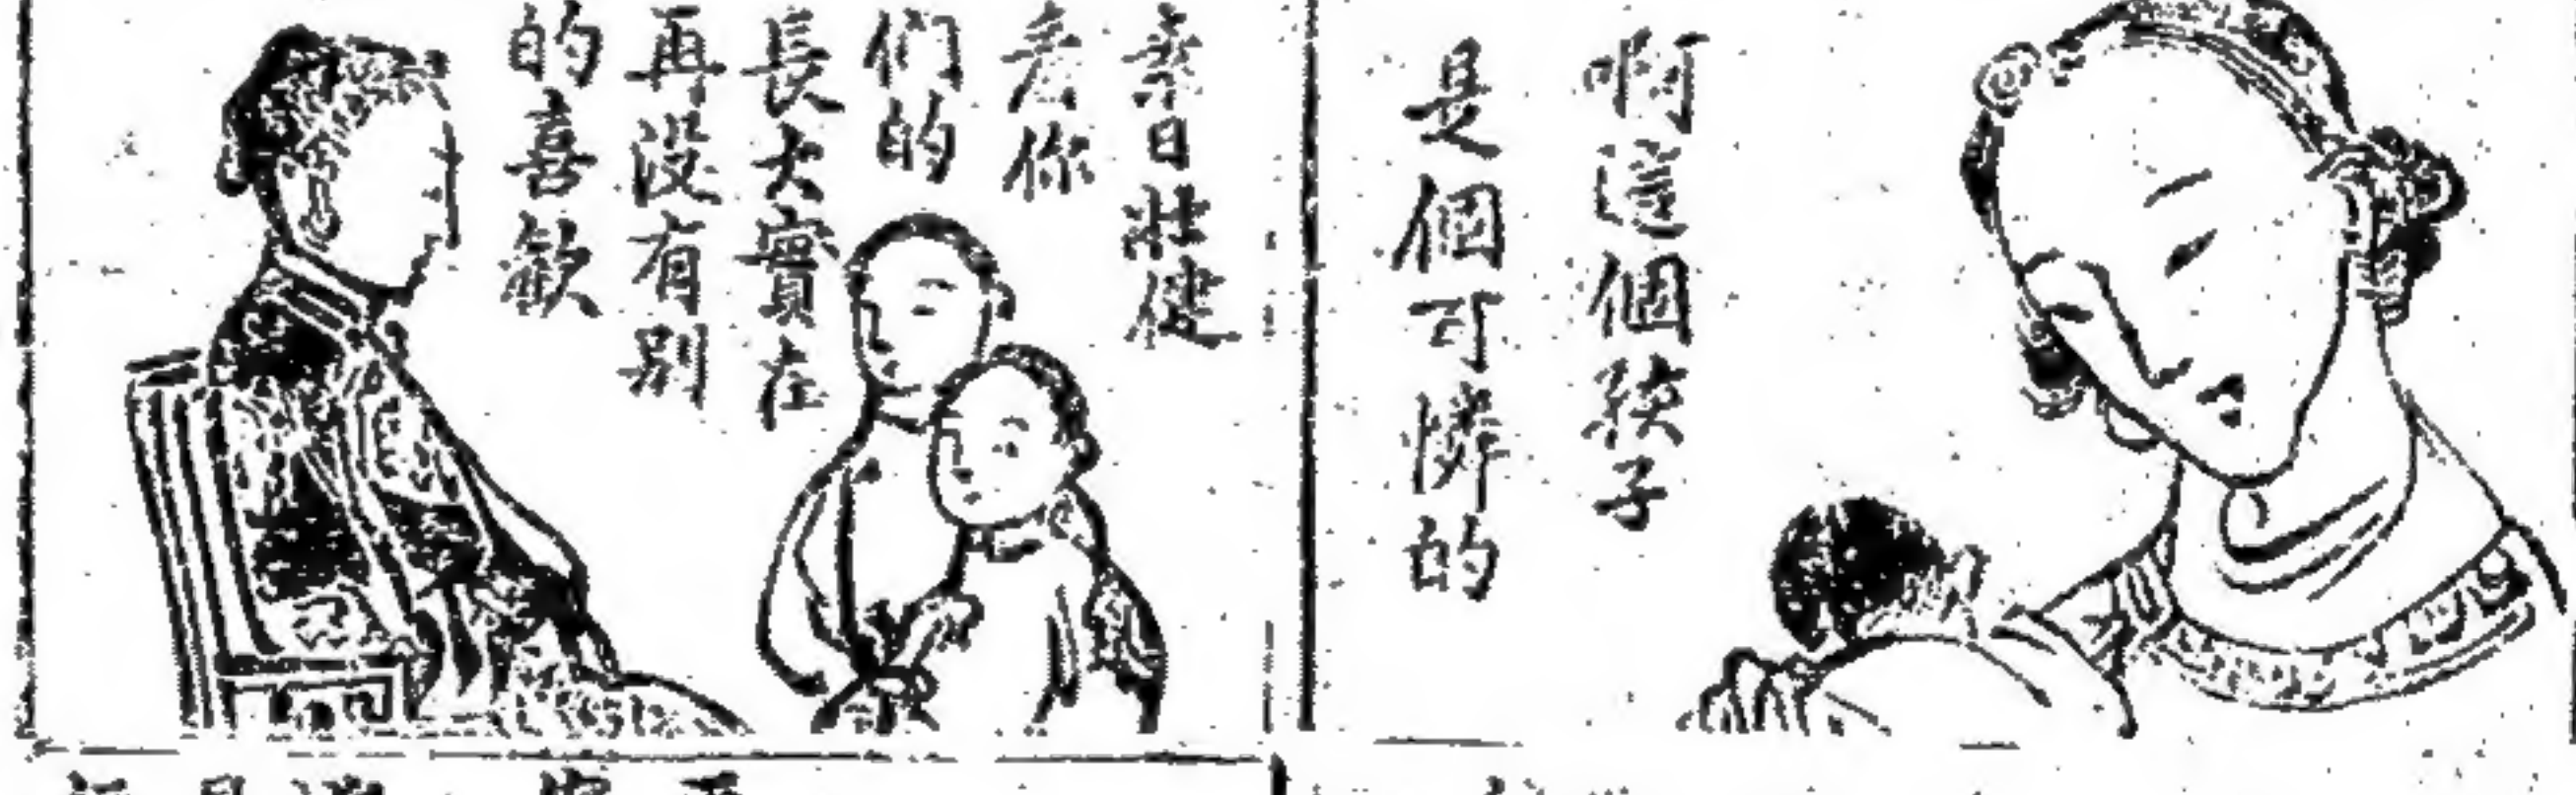 啊這個孩子
是個可憐的
素日壯健
看你
们的
長大實在
再沒有别
的喜歡